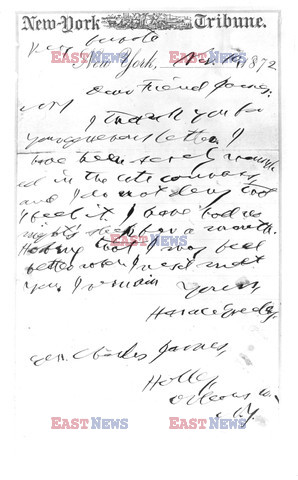 New-York Tribune.
Private
New York, Nov. 1872
Dear Friend James:
I thank you for
your generous letter. I
have been sorely
ed in the late
and I do not deny that
I feel it. I have had no
night's sleep for a month.
Hoping that I may feel
better when I next meet
you, I remain
Yours,
Horace Greeley.
Gen. Charles James,
Holley,
Orleans Co.
N.Y.
EAST NEWS
EAST NEWS
EAST NEWS
EAST NEWS
EAST NEWS
EAST NEWS
EAST NEWS
EAST NEWS